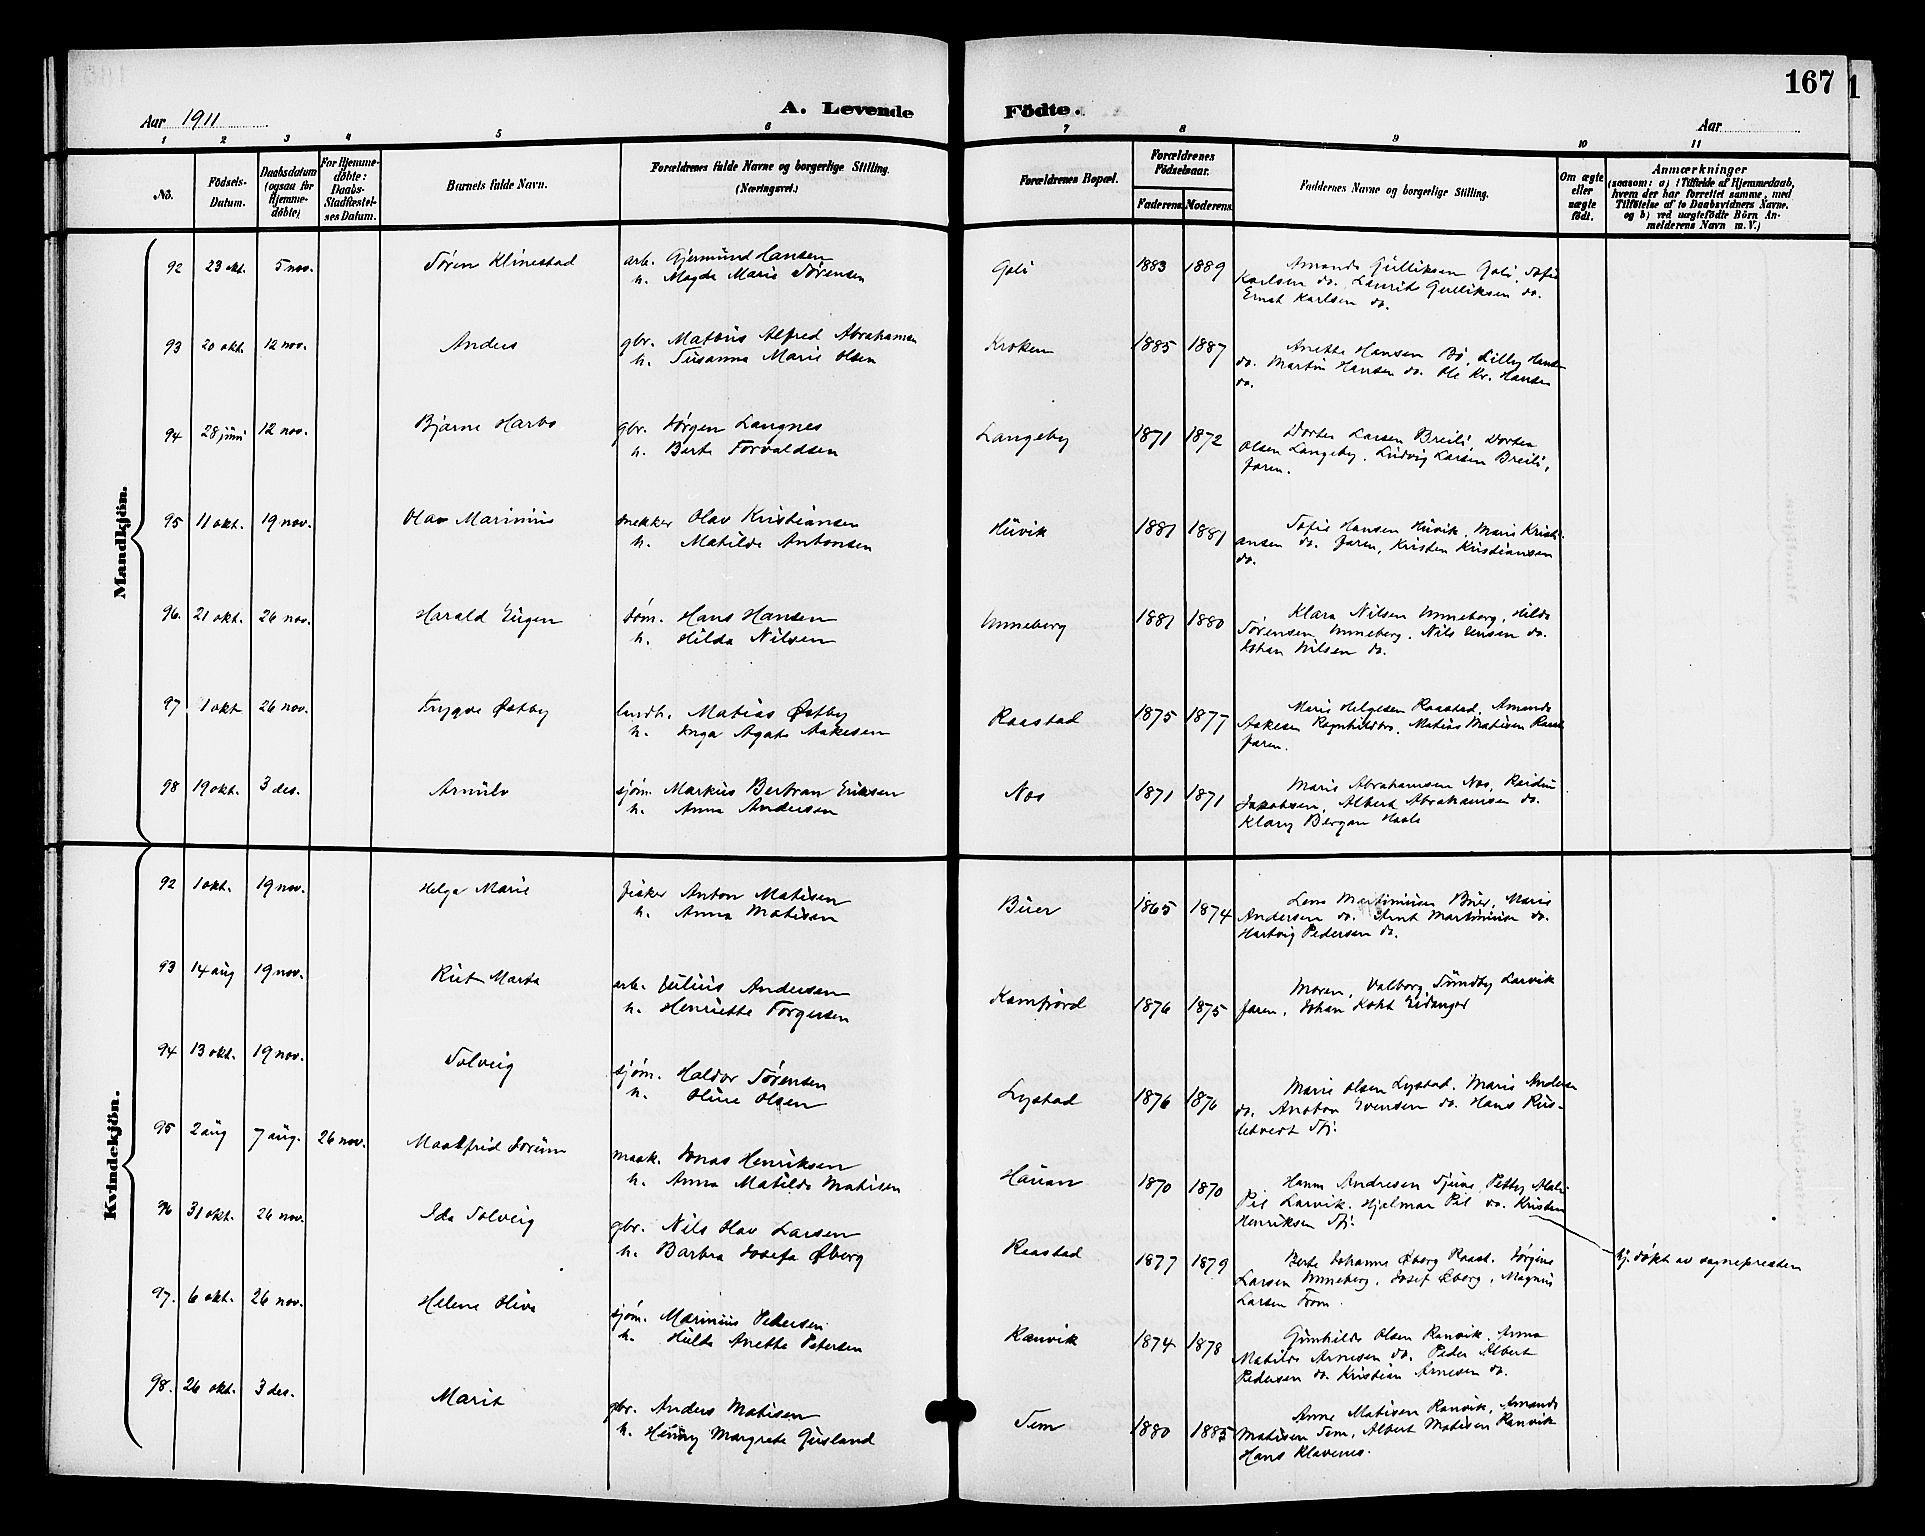 167
Aar 1911
A. Levende Födte.
Aar
1 2 3 4 5 6 7 8 9 10 11
No.
Födsels-Datum.
Daabsdatum (ogsaa for Hjemme-döbte)
For Hjemme-döbte: Daabs-Stadfæstel-ses Datum.
Barnets fulde Navn.
Forældrenes fulde Navne og borgerlige Stilling. (Næringsvei.)
Forældrenes Bopæl.
Forældrenes Födselsaar.
Faderens. Moderens.
Faddernes Navne og borgerlige Stilling.
Om ægte eller uægte födt.
Anmærkninger
(saasom: a) i Tilfælde af Hjemmedaab,
hvem der har forrettet samme, med
Tilföielse af to Daabsvidners Navne.
og b) ved uægtefödte Börn An-
melderens Navn m. V.)
Mandkjön.
92 23 okt. 5 nov. Søren Klinestad
arb. Gjermund Hansen
h. Magda Marie Sørensen
Gali 1883 1889
Amanda Gulliksen Gali, Sofie
Karlsen do. Laurits Gulliksen do.
Ernst Karlsen do.
93 20 okt. 12 nov. Anders
gbr. Mathæus Alfred Abrahamsen
h. Susanna Marie Olsen
Kroken 1885 1887
Anette Hansen Bø, Lilly Hansen
do. Martin Hansen do. Ole Kr. Hansen
do.
94 28 juni 12 nov. Bjarne Harbo
gbr. Jørgen Langnes
h. Berte Torvaldsen
Langeby 1871 1872
Dortea Larsen Breili, Dortea
Olsen Langeby, Ludvig Larsen Breili,
faren.
95 11 okt. 19 nov. Olav Marinius
snekker Olav Kristiansen
h. Matilde Antonsen
Huvik 1881 1881
Sofie Hansen Huvik, Marie Kristi-
ansen do. faren, Kristen Kristiansen
do.
96. 21 okt. 26 nov. Harald Eugen
sjøm. Hans Hansen
h. Hilda Nilsen
Unneberg 1881 1880
Klara Nilsen Unneberg, Hilda
Sørensen, Unneberg, Nils Jensen do.
Johan Nilsen do.
97 1 okt 26 nov. Trygve Østby
landh. Matias Østby
h. Inga Agate Aakesen
Raastad 1875 1877
Marie Helgesen Raastad, Amanda
Aakesen Ragnhildbo, Matias Matisen Raast
faren.
98 19 okt. 3 des. Arnulv
sjøm. Markus Bertran Eriksen
h. Anna Andersen
Nes 1871 1871
Marie Abrahamsen Nes, Reidun
Jakobsen, Albert Abrahamsen do.
Klary Bergan
Kvindekjön.
92 1 okt. 19 nov. Helga Marie
fisker Anton Matisen
h. Anna Matisen
Buer 1865 1874
Lena Martiniusen Buer, Marie
Andersen do. Arnt Martiniusen do.
Hartvig Pedersen do.
93 14 aug 19 nov. Rut Marta
arb. Julius Andersen
h. Henriette Torgersen
Kamfjord 1876 1875
Moren, Valborg Sundby Larvik
faren, Johan Kokt Eidanger
94 13 okt. 19 nov. Solveig
sjøm. Haldor Sørensen
h. Oline Olsen
Lystad 1876 1876
Marie Olsen Lystad. Marie Andersen
do. Anston Evensen do. Hans Rus-
letvedt Stj.
95 2 aug 7 aug. 26 nov. Maalfrid Jorunn
mask. Jonas Henriksen
h. Anna Matilde Matisen
Hauan 1870 1870
Hanna Andresen Tjuve, Petty Mali
Pil Larvik. Hjalmar Pil do. Kristen
Henriksen Stj.
Hj. døpt av sognepresten
96 31 okt. 26 nov. Ida Solveig
gbr. Nils Olav Larsen
h. Barbra Josefa Øberg
Raastad 1877 1879
Berte Johanne Øberg Raast. Jørgine
Larsen Unneberg, Josef Øberg, Magnus
Larsen From.
97. 6 okt. 26 nov. Helene Oliva
sjøm. Marinius Pedersen
h. Hulda Anette Petersen
Ranvik 1874 1878
Gunhilda Olsen Ranvik, Anna
Matilde Arnesen do. Peder Albert
Pedersen do. Kristian Arnesen do.
98. 26 okt. 3 des. Marit
gbr. Anders Matisen
h. Henny Margrete Gusland
Tem 1880 1885
Anne Matisen Ranvik, Amanda
Matisen Tem, Albert Matisen Ranvik
Hans Klavenes.